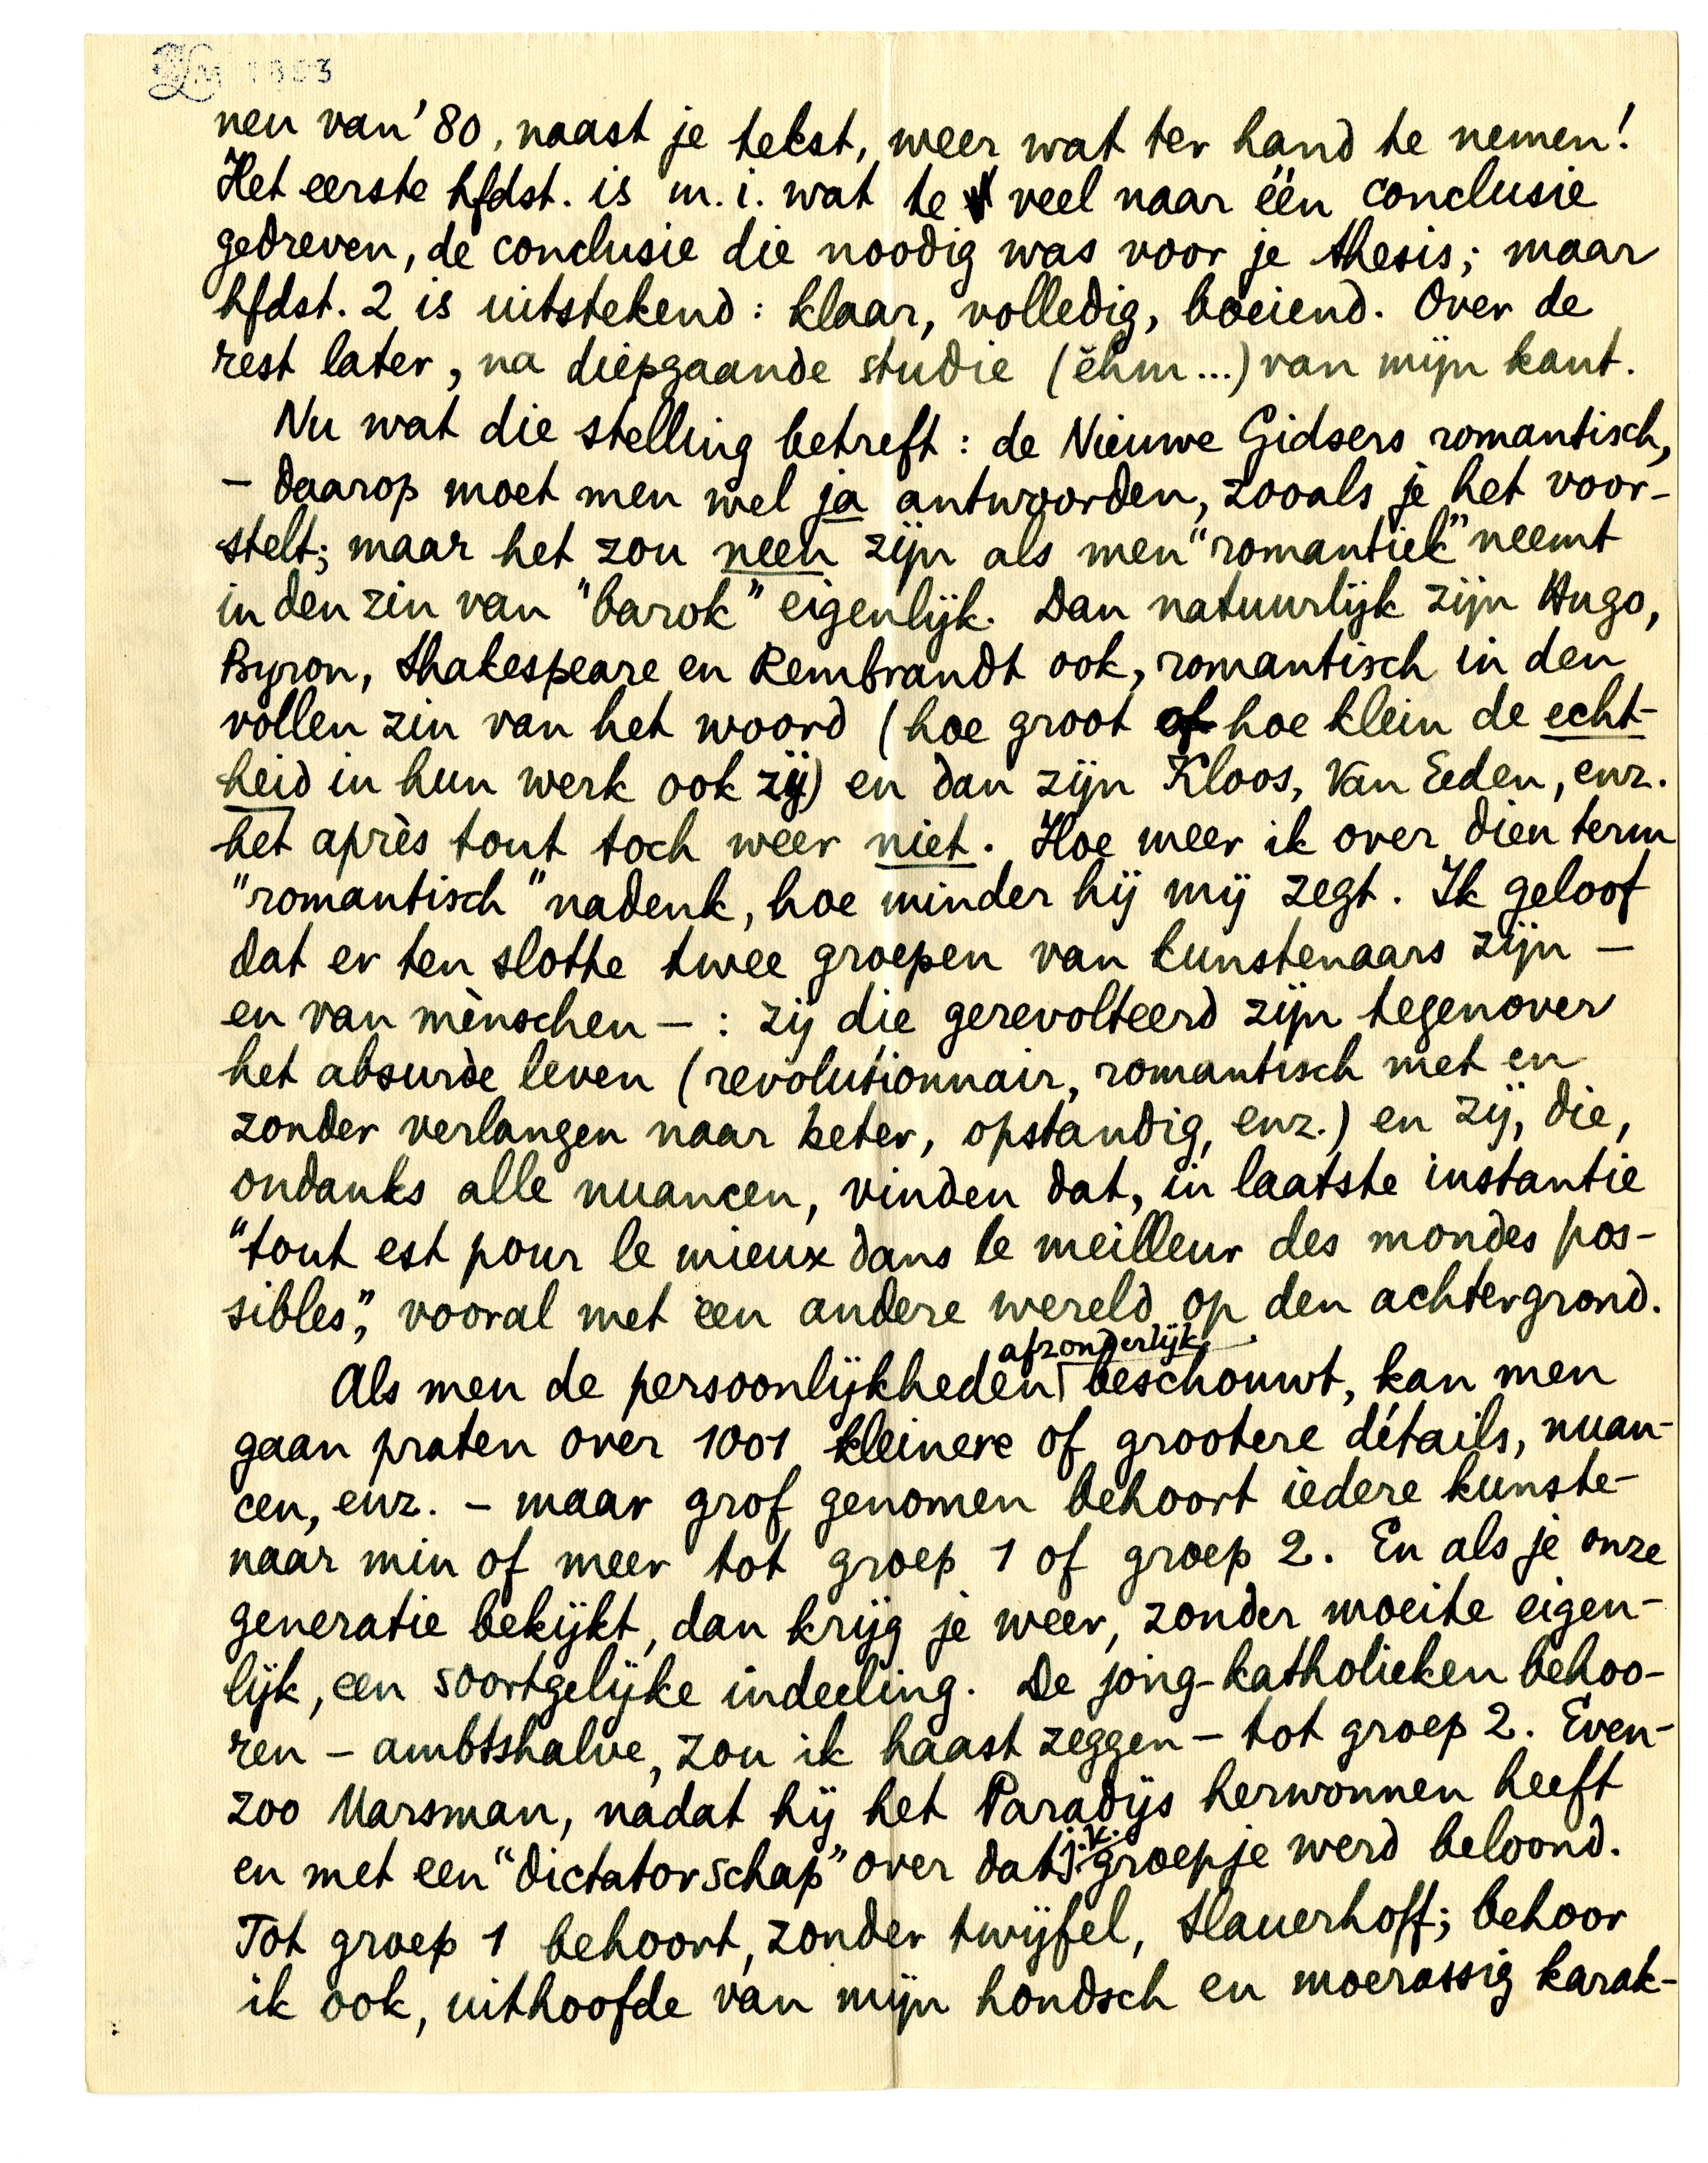 LM 1853
nen van '80, naast je tekst, weer wat ter hand te nemen!
Het eerste hfdst. is m.i. wat te veel naar één conclusie
gedreven, de conclusie die noodig was voor je thesis; maar
hfdst. 2 is uitstekend: klaar, volledig, boeiend. Over de
rest later, na diepgaande studie (ĕhm...) van mijn kant.
Nu wat die stelling betreft: de Nieuwe Gidsers romantisch,
– daarop moet men wel ja antwoorden, zooals je het voor-
stelt; maar het zou neen zijn als men "romantiek" neemt
in den zin van "barok" eigenlijk. Dan natuurlijk zijn Hugo,
Byron, Shakespeare en Rembrandt ook, romantisch in den
vollen zin van het woord (hoe groot of hoe klein de echt-
heid in hun werk ook zij) en dan zijn Kloos, Van Eeden, enz.
het après tout toch weer niet. Hoe meer ik over dien term
"romantisch" nadenk, hoe minder hij mij zegt. Ik geloof
dat er ten slotte twee groepen van kunstenaars zijn –
en van mènschen – : zij die gerevolteerd zijn tegenover
het absurde leven (revolutionnair, romantisch met en
zonder verlangen naar beter, opstandig, enz.) en zij, die,
ondanks alle nuancen, vinden dat, in laatste instantie
"tout est pour le mieux dans le meilleur des mondes pos-
sibles", vooral met een andere wereld op den achtergrond.
Als men de persoonlijkheden afzonderlijk beschouwt, kan men
gaan praten over 1001 kleinere of grootere détails, nuan-
cen, enz. – maar grof genomen behoort iedere kunste-
naar min of meer tot groep 1 of groep 2. En als je onze
generatie bekijkt, dan krijg je weer, zonder moeite eigen-
lijk, een soortgelijke indeeling. De jong-katholieken behoo-
ren – ambtshalve, zou ik haast zeggen – tot groep 2. Even-
zoo Marsman, nadat hij het Paradijs herwonnen heeft
en met een "dictatorschap" over dat j.k. groepje werd beloond.
Tot groep 1 behoort, zonder twijfel, Slauerhoff; behoor
ik ook, uithoofde van mijn hondsch en moerassig karak-